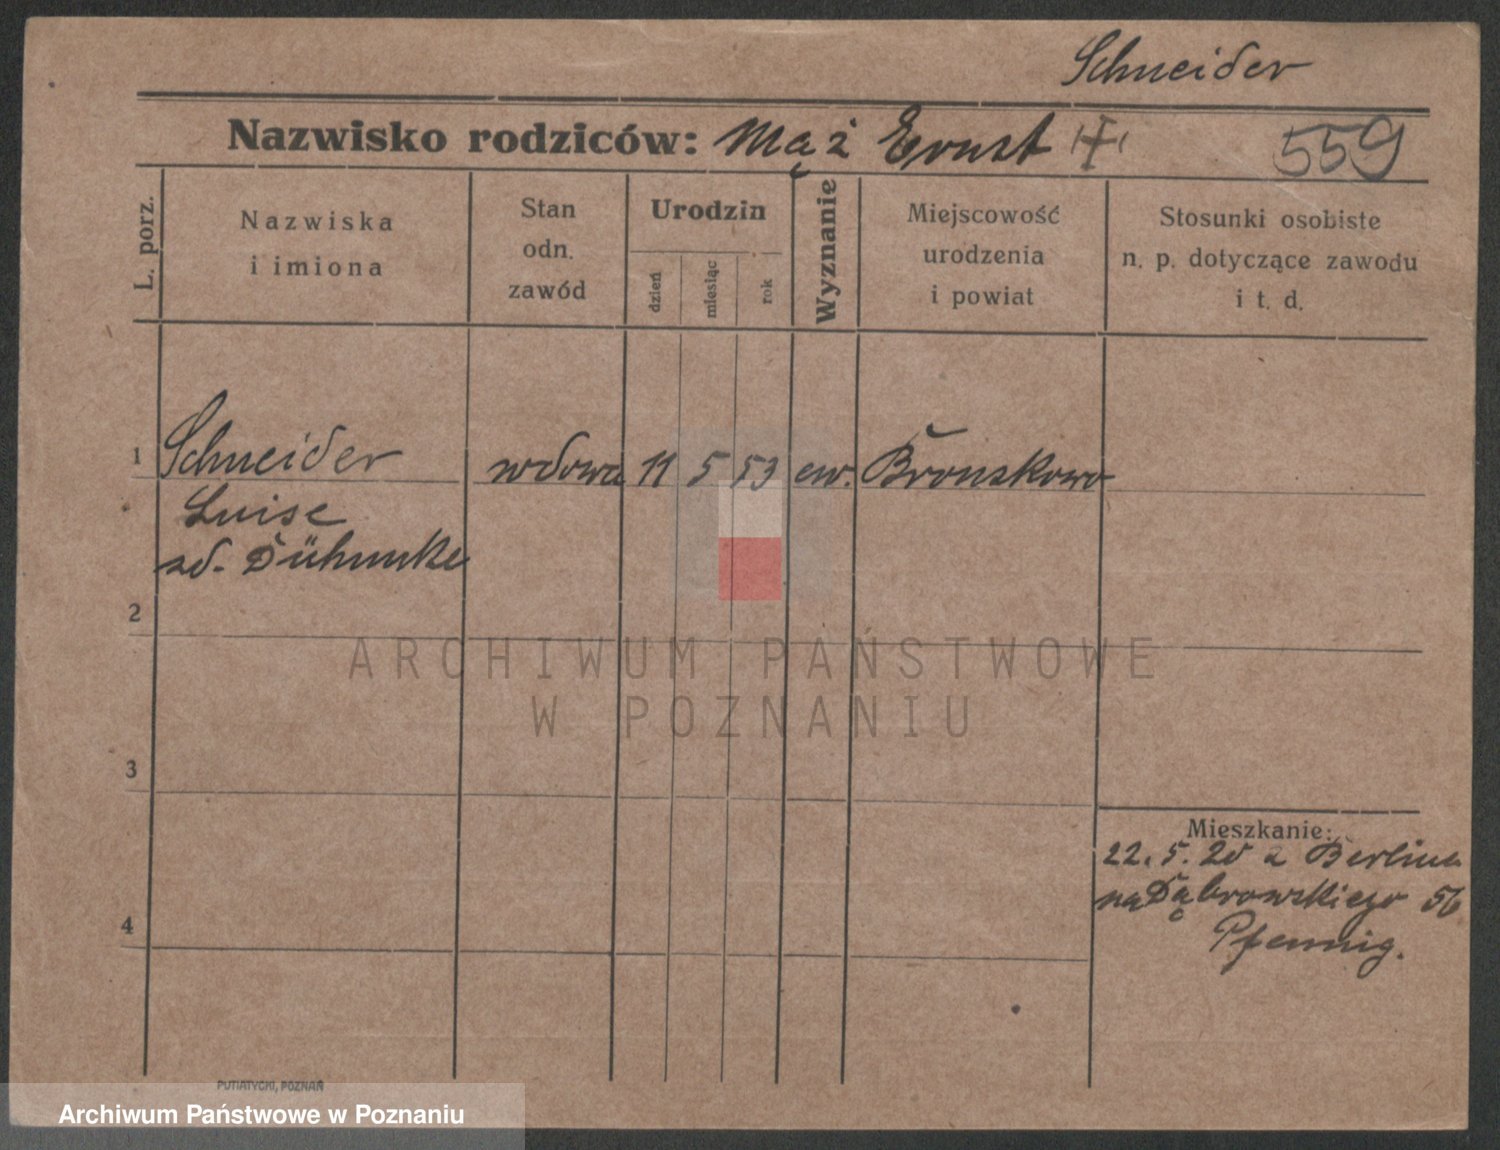 Schneider
Nazwisko rodziców: Mąż Ernst 559
L. porz.
Nazwiska
i imiona
Stan
odn.
zawód
Urodzin
dzień
miesiąc
rok
Wyznanie
Miejscowość
urodzenia
i powiat
Stosunki osobiste
n. p. dotyczące zawodu
i t. d.
1 Schneider wdowa 11 5 53 ew. Bronskowo
Luise
zd. Dühmke
2
3
4
Mieszkanie:
22. 5. 20 z Berlina
na Dąbrowskiego 56
Pfennig.
ARCHIWUM PAŃSTWOWE
W POZNANIU
PUTIATYCKI, POZNAŃ
Archiwum Państwowe w Poznaniu